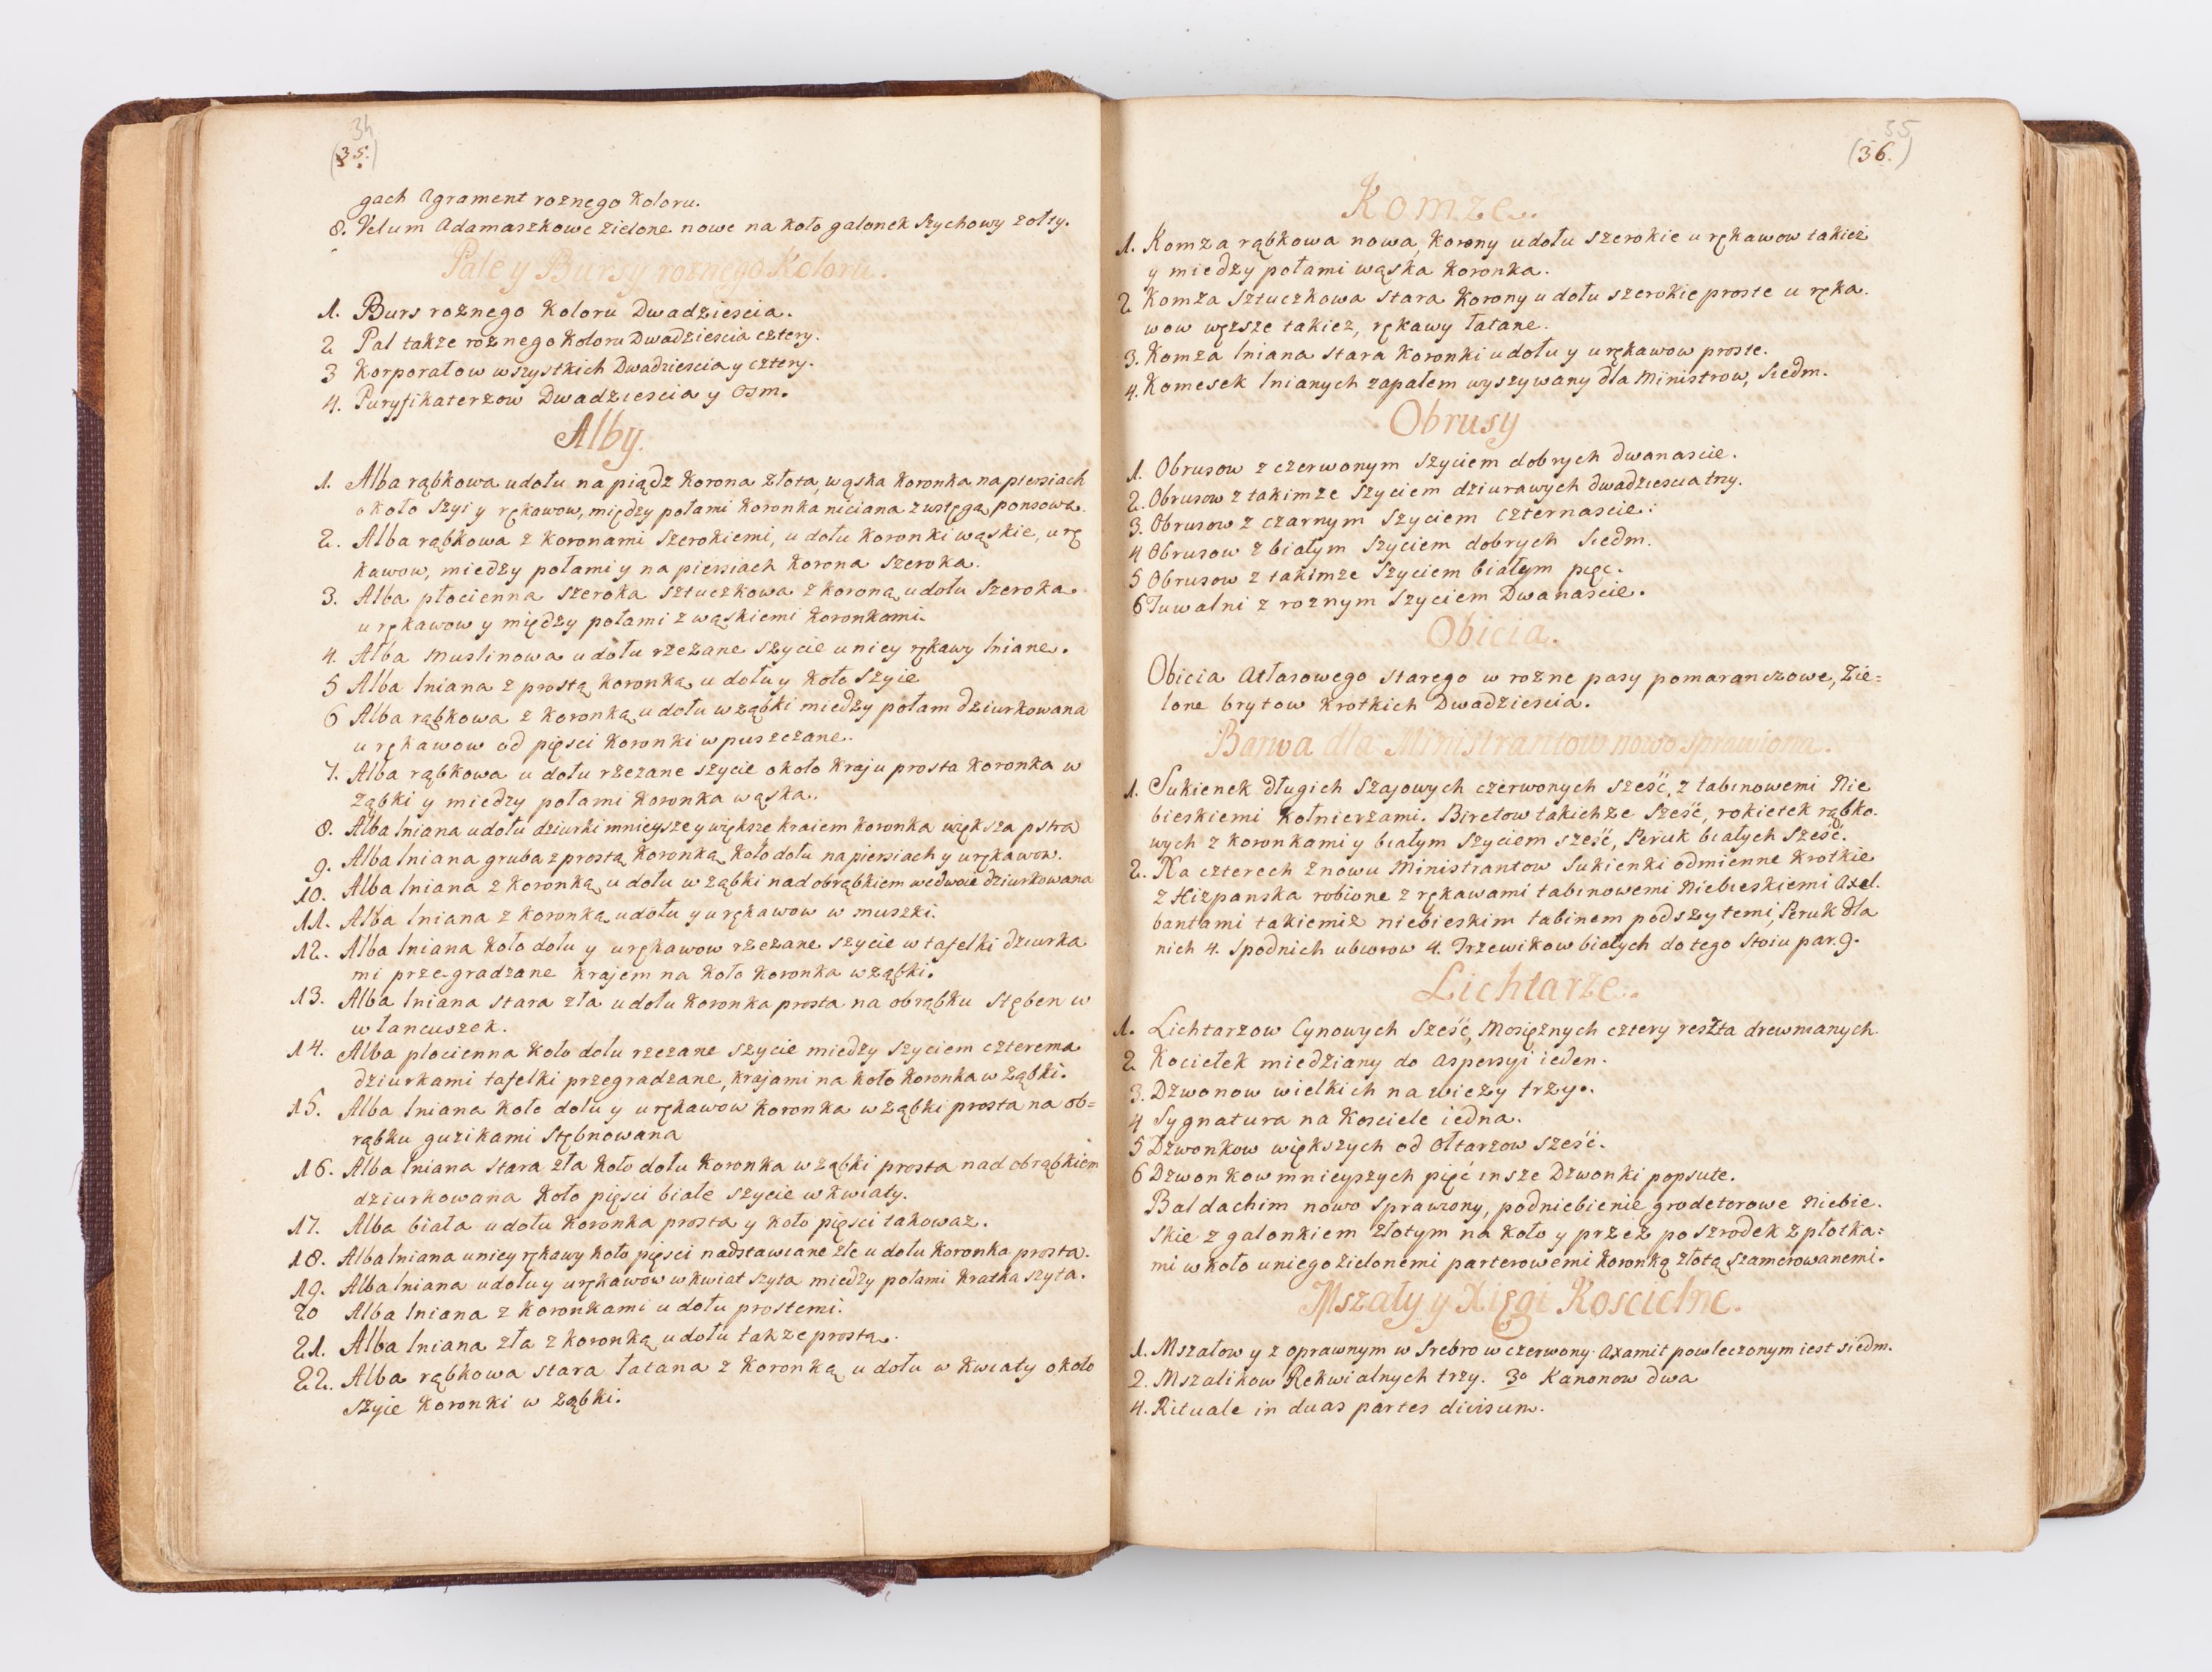 34
(35.)
gach Agrament roznego Koloru.
8. Velum Adamaszkowe zielone nowe na koło galonek Szychowy zołty.
Pale y Bursy roznego Koloru.
1. Burs roznego Koloru Dwadziescia.
2 Pal takze roznego Koloru Dwadziescia cztery.
3 Korporałow wszystkich Dwadziescia y cztery.
4. Puryfikaterzow Dwadziescia y Osm.
Alby.
1. Alba rąbkowa u dołu na piądz Korona złota, wąska Koronka na piersiach
około Szyi y rękawow, między połami Koronka niciana z wstęgą ponsową.
2. Alba rąbkowa z Koronami Szerokiemi, u dołu Koronki wąskie, u rę
kawow, miedzy połami y na piersiach Korona Szeroka.
3. Alba płocienna Szeroka Sztuczkowa z Koroną u dołu Szeroka.
u rękawow y między połami z wąskiemi Koronkami.
4. Alba Muslinowa u dołu rzezane Szycie u niey rękawy lniane.
5 Alba lniana z prostą Koronką u dołu y Koło Szyie
6 Alba rąbkowa z Koronką u dołu w ząbki miedzy połam dziurkowana
u rękawow od pięsci Koronki wpuszczane.
7. Alba rąbkowa u dołu rzezane szycie około Kraju prosta Koronka w
ząbki y miedzy połami Koronka wąska.
8. Alba lniana u dołu dziurki mnieysze y większe kraiem Koronka większa pstra
9. Alba lniana gruba z prostą Koronką Koło dołu na piersiach y u rękawow.
10. Alba lniana z Koronką u dołu w ząbki nad obrąbkiem we dwoie dziurkowana
11. Alba lniana z Koronką u dołu y u rękawow w muszki.
12. Alba lniana Koło dołu y u rękawow rzezane szycie w tafelki dziurka
mi przegradzane Krajem na Koło Koronka w ząbki.
13. Alba lniana stara zła u dołu Koronka prosta na obrąbku Stęben w
w łancuszek.
14. Alba płocienna Koło dołu rzezane szycie miedzy Szyciem czterema
dziurkami tafelki przegradzane, krajami na Koło Koronka w ząbki.
15. Alba lniana Koło dołu y u rękawow Koronka w ząbki prosta na ob=
rąbku guzikami Stębnowana
16. Alba lniana stara zła Koło dołu Koronka w ząbki prosta nad obrąbkiem
dziurkowana Koło pięsci białe szycie w kwiaty.
17. Alba biała u dołu Koronka prosta y Koło pięsci takowaz.
18. Alba lniana u niey rękawy Koło pięsci nadstawiane złe u dołu Koronka prosta.
19. Alba lniana u dołu y u rękawow w kwiat szyta miedzy połami Kratka szyta.
20 Alba lniana z Koronkami u dołu prostemi.
21. Alba lniana zła z Koronką u dołu takze prosta.
22. Alba rąbkowa stara łatana z Koronką u dołu w Kwiaty około
szyie Koronki w ząbki.
35
(36.)
Komze.
1. Komza rąbkowa nowa, Korony u dołu szerokie u rękawow takiez
y miedzy połami wąska Koronka.
2 Komza Sztuczkowa stara Korony u dołu szerokie proste u ręka.
wow węzsze takiez, rękawy łatane.
3. Komza lniana stara Koronki u dołu y u rękawow proste.
4. Komesek lnianych zapałem wyszywany dla Ministrow, Siedm.
Obrusy
1. Obrusow z czerwonym Szyciem dobrych dwanascie.
2. Obrusow z takimze Szyciem dziurawych dwadziescia trzy.
3. Obrusow z czarnym Szyciem Czternascie.
4 Obrusow z białym Szyciem dobrych Siedm.
5 Obrusow z takimze Szyciem białym pięc.
6 Tuwalni z roznym Szyciem Dwanascie.
Obicia.
Obicia Atłasowego Starego w rozne pasy pomaranczowe, Zie=
lone brytow Krotkich Dwadziescia.
Barwa dla Ministrantow nowo sprawiona.
1. Sukienek długich Szajowych czerwonych szesć, z tabinowemi Nie
bieskiemi Kołnierzami. Biretow takichze Szesć, rokietek rąbko.
wych z Koronkami y białym Szyciem szesć, Peruk białych Szesć.
2. Na czterech znowu Ministrantow Sukienki odmienne Krotkie
z Hizpanska robione z rękawami tabinowemi Niebieskiemi Axel.
bantami takiemiz niebieskim tabinem podszytemi, Peruk dla
nich 4. Spodnich ubiorow 4. Trzewikow białych do tego Stoiu par. 9.
Lichtarze.
1. Lichtarzow Cynowych Szesć, Mosięznych cztery reszta drewnianych.
2 Kociełek miedziany do Aspersyi ieden.
3. Dzwonow wielkich na wiezy trzy.
4 Sygnatura na Kosciele iedna.
5 Dzwonkow większych od Ołtarzow szesć.
6 Dzwonkow mnieyszych pięć insze Dzwonki popsute.
Baldachim nowo Sprawiony, podniebienie grodetorowe Niebie.
skie z galonkiem złotym na Koło y przez po szrodek z płotka=
mi w koło u niego zielonemi parterowemi Koronką złotą szamerowanemi.
Mszały y Xięgi Koscielne.
1. Mszałow y z oprawnym w Srebro w czerwony Axamit powleczonym iest siedm.
2. Mszalikow Rekwialnych trzy. 3o Kanonow dwa
4. Rituale in duas partes divisum.